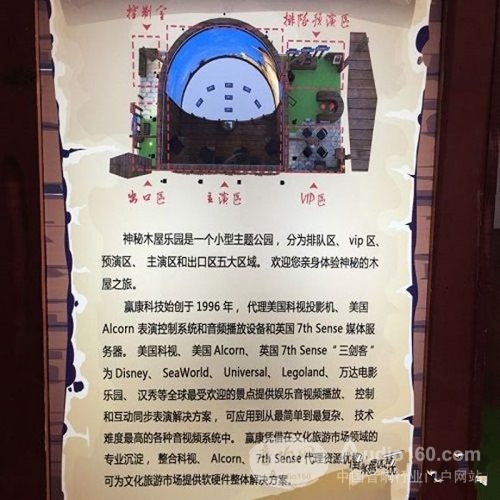 控制室
排队预演区
出口区
主演区
VIP区
神秘木屋乐园是一个小型主题公园，分为排队区、vip 区、
预演区、主演区和出口区五大区域。欢迎您亲身体验神秘的木
屋之旅。
赢康科技始创于 1996 年，代理美国科视投影机、美国
Alcorn 表演控制系统和音频播放设备和英国 7th Sense 媒体服
务器。美国科视、美国 Alcorn、英国 7th Sense“三剑客”
为 Disney、SeaWorld、Universal、Legoland、万达电影
乐园、汉秀等全球最受欢迎的景点提供娱乐音视频播放、控制
和互动同步表演解决方案，可应用到从最简单到最复杂、技术
难度最高的各种音视频系统中。赢康凭借在文化旅游市场领域的
专业沉淀，整合科视、Alcorn、7th Sense 代理资源优势，
可为文化旅游市场提供软硬件整体解决方案。
Audio160.com
中国音响行业门户网站